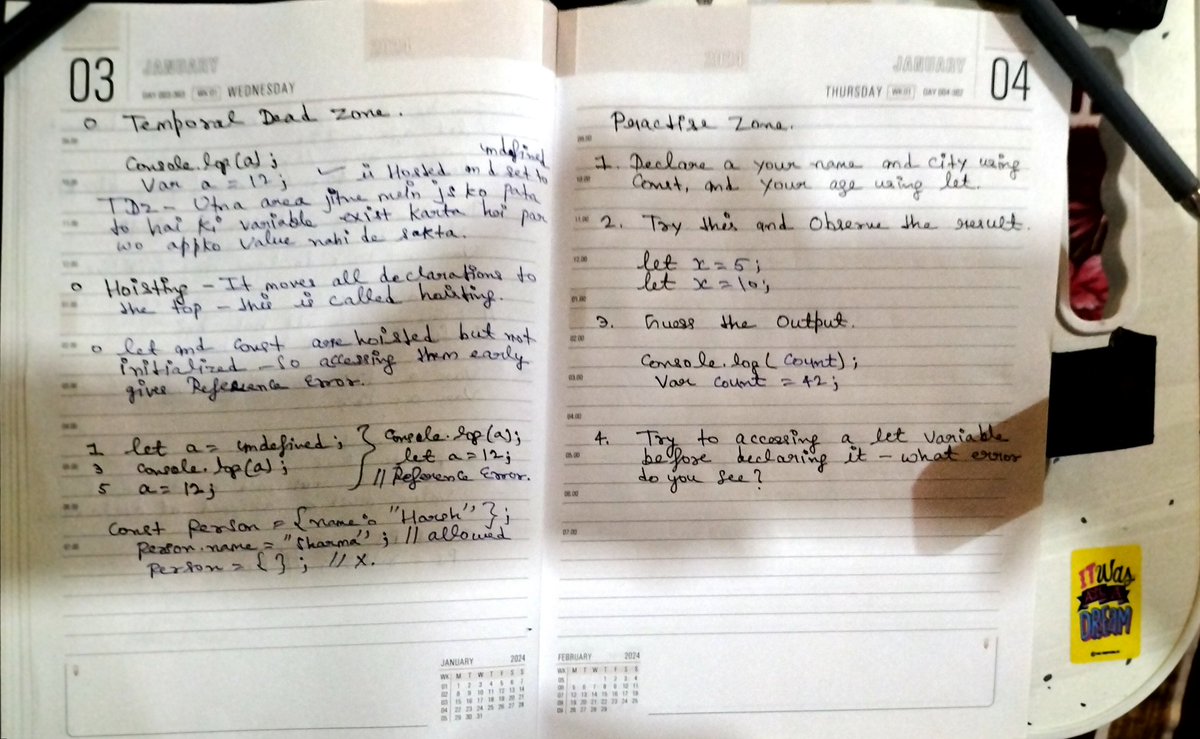 03
JANUARY
DAY 003-363 WK 01 WEDNESDAY
2024
o Temporal Dead Zone.
Console.log(a);
Var a = 12; ✓ is Hosted and set to undefined
TDZ - Utna area jitne mein js ko pata
to hai ki variable exist karta hai par
wo appko value nahi de sakta.
o Hoisting - It moves all declarations to
the top - this is called hoisting.
o let and const are hoisted but not
initialized - so accessing them early
gives Reference Error.
1 let a = undefined;
3 console.log(a);
5 a = 12;
} Console.log(a);
let a = 12;
// Reference Error.
Const Person = {name: "Harsh"};
person.name = "Sharma"; // allowed
Person = { }; // X.
JANUARY 2024
WK M T W T F S S
01 1 2 3 4 5 6 7
02 8 9 10 11 12 13 14
03 15 16 17 18 19 20 21
04 22 23 24 25 26 27 28
05 29 30 31
2024
JANUARY
04
THURSDAY WK 01 DAY 004-362
Practise Zone.
1. Declare a your name and city using
Const, and your age using let.
2. Try this and Observe the result.
let x = 5;
let x = 10;
3. Guess the Output.
Console.log( count);
Var count = 42;
4. Try to accessing a let variable
before declaring it - what error
do you see?
FEBRUARY 2024
WK M T W T F S S
05 1 2 3 4
06 5 6 7 8 9 10 11
07 12 13 14 15 16 17 18
08 19 20 21 22 23 24 25
09 26 27 28 29
IT Was
DREAM